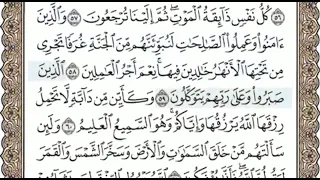 ٥٦ كُلُّ نَفْسٍ ذَآئِقَةُ ٱلْمَوْتِ ثُمَّ إِلَيْنَا تُرْجَعُونَ ٥٧ وَٱلَّذِينَ
ءَامَنُوا۟ وَعَمِلُوا۟ ٱلصَّٰلِحَٰتِ لَنُبَوِّئَنَّهُم مِّنَ ٱلْجَنَّةِ غُرَفًا تَجْرِى
مِن تَحْتِهَا ٱلْأَنْهَٰرُ خَٰلِدِينَ فِيهَا نِعْمَ أَجْرُ ٱلْعَٰمِلِينَ ٥٨ ٱلَّذِينَ
صَبَرُوا۟ وَعَلَىٰ رَبِّهِمْ يَتَوَكَّلُونَ ٥٩ وَكَأَيِّن مِّن دَآبَّةٍ لَّا تَحْمِلُ
رِزْقَهَا ٱللَّهُ يَرْزُقُهَا وَإِيَّاكُمْ وَهُوَ ٱلسَّمِيعُ ٱلْعَلِيمُ ٦٠ وَلَئِن
سَأَلْتَهُم مَّنْ خَلَقَ ٱلسَّمَٰوَٰتِ وَٱلْأَرْضَ وَسَخَّرَ ٱلشَّمْسَ وَٱلْقَمَرَ